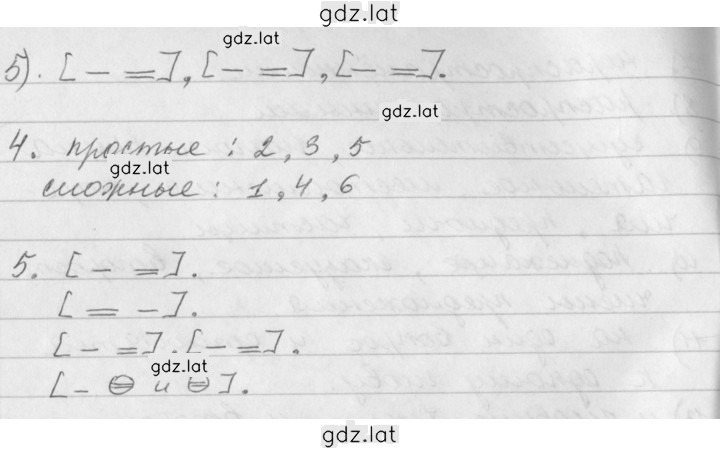 gdz.lat
gdz.lat
5). [ – = ], [ – = ], [ – = ].
gdz.lat
4. простые : 2, 3, 5
gdz.lat
сложные : 1, 4, 6
5. [ – = ].
[ = – ].
[ – = ]. [ – = ].
gdz.lat
[ – ⊜ и ⊜ ].
gdz.lat